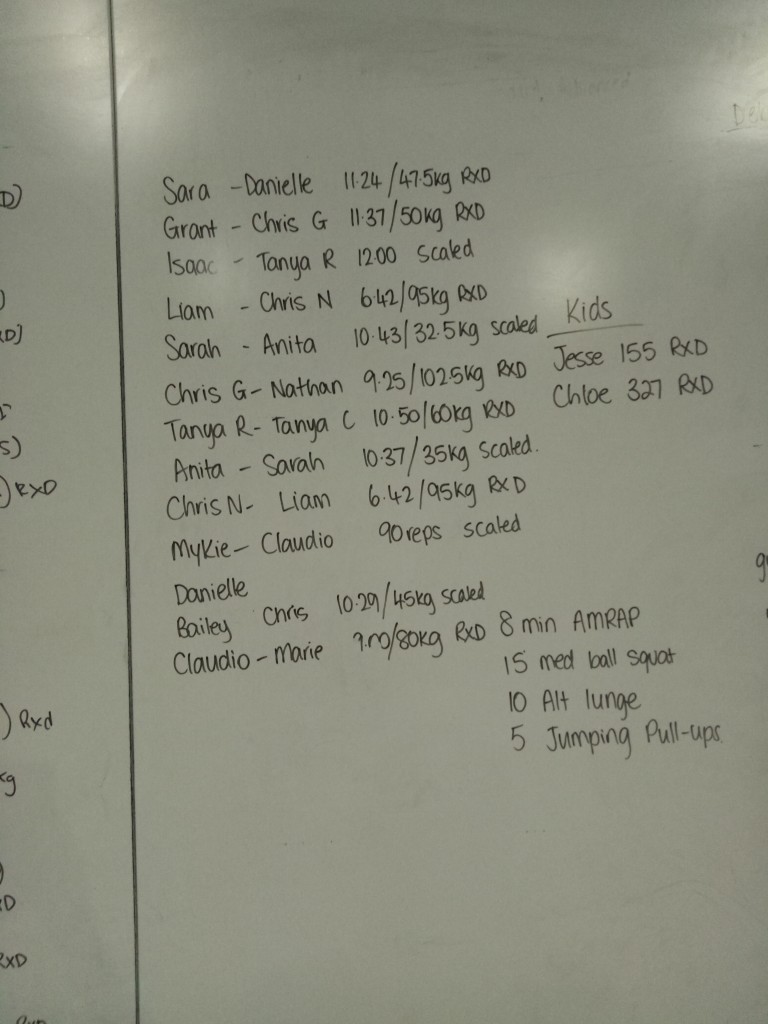 Sara - Danielle 11.24/47.5kg RXD
Grant - Chris G 11.37/50kg RXD
Isaac - Tanya R 12.00 scaled
Liam - Chris N 6.42/95kg RXD
Sarah - Anita 10.43/32.5kg scaled
Chris G - Nathan 9.25/102.5kg RXD
Tanya R - Tanya C 10.50/60kg RXD
Anita - Sarah 10.37/35kg scaled.
Chris N - Liam 6.42/95kg RXD
Mykie - Claudio 90reps scaled
Danielle
Bailey Chris 10.29/45kg scaled
Claudio - Marie /80kg RXD
Kids
Jesse 155 RXD
Chloe 327 RXD
8 min AMRAP
15 med ball squat
10 Alt lunge
5 Jumping Pull-ups
D)
)
D]
s)
) RXD
) Rxd
kg
)
D
RXD